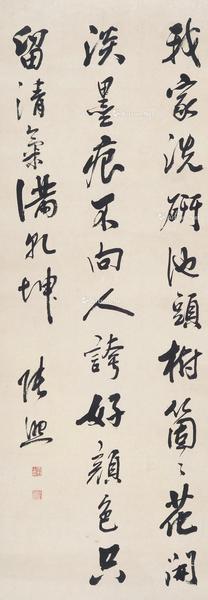 我家洗研池頭樹箇〻花開
淡墨痕不向人誇好顏色只
留清氣滿乾坤 陳照